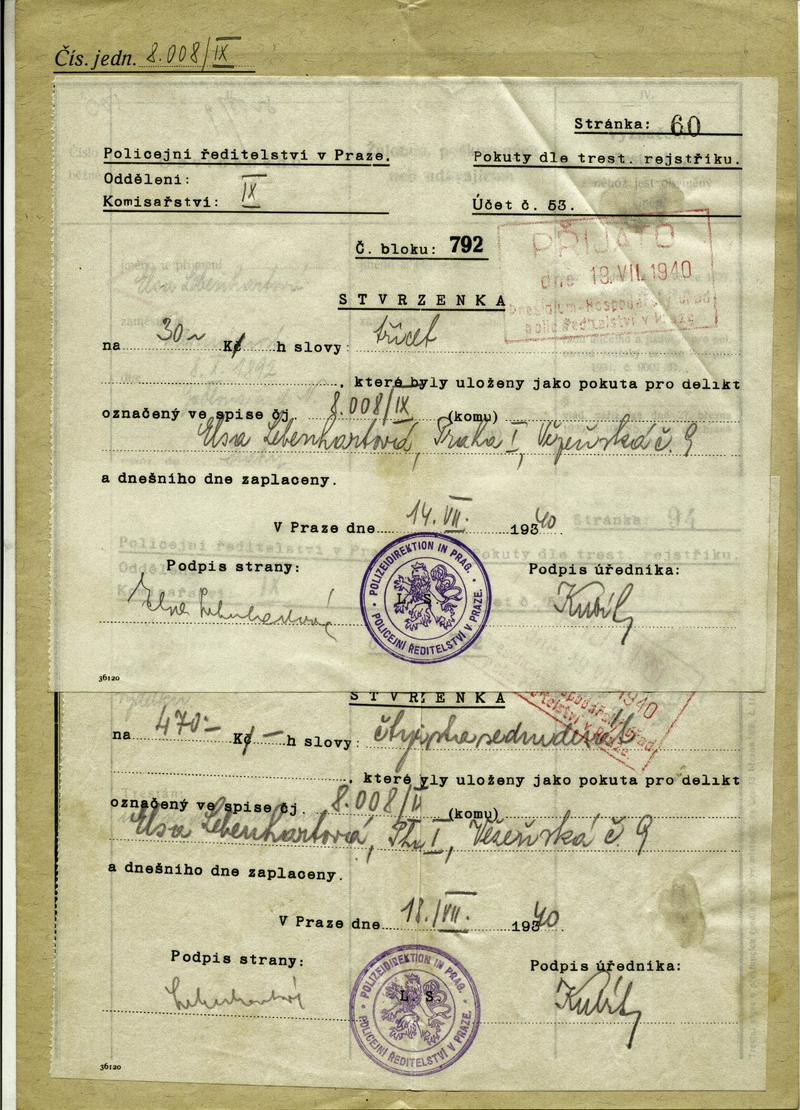 Čís. jedn. 8.008/IX
Stránka: 60
Policejní ředitelství v Praze.
Pokuty dle trest. rejstříku.
Oddělení:
Komisařství: IX
Účet č. 53.
Č. bloku: 792
PŘIJATO
dne 18.VII.1940
STVRZENKA
na 30 K h slovy: třicet
, které byly uloženy jako pokuta pro delikt
označený ve spise čj. 8.008/IX (komu)
Elsa Lebenhartová, Praha I, Vězeňská č. 9
a dnešního dne zaplaceny.
V Praze dne 14. VII. 1940.
Podpis strany:
Podpis úředníka:
POLIZEIDIREKTION IN PRAG.
L. S.
POLICEJNÍ ŘEDITELSTVÍ V PRAZE.
36120
STVRZENKA
1940
na 470 K h slovy:
, které yly uloženy jako pokuta pro delikt
označený ve spise čj. 8.008/ (komu)
Elsa Lebenhartová, I, Vězeňská č. 9
a dnešního dne zaplaceny.
V Praze dne 18./VII. 1940
Podpis strany:
Podpis úředníka:
POLIZEIDIREKTION IN PRAG.
L. S.
POLICEJNÍ ŘEDITELSTVÍ V PRAZE.
36120